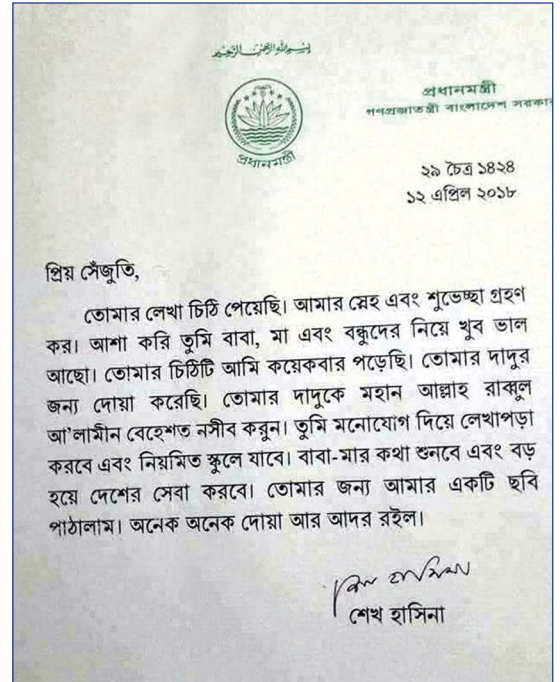 بسم الله الرحمن الرحيم
প্রধানমন্ত্রী
প্রধানমন্ত্রী
গণপ্রজাতন্ত্রী বাংলাদেশ সরকার
২৯ চৈত্র ১৪২৪
১২ এপ্রিল ২০১৮
প্রিয় সেঁজুতি,
তোমার লেখা চিঠি পেয়েছি। আমার স্নেহ এবং শুভেচ্ছা গ্রহণ
কর। আশা করি তুমি বাবা, মা এবং বন্ধুদের নিয়ে খুব ভাল
আছো। তোমার চিঠিটি আমি কয়েকবার পড়েছি। তোমার দাদুর
জন্য দোয়া করেছি। তোমার দাদুকে মহান আল্লাহ রাব্বুল
আ'লামীন বেহেশত নসীব করুন। তুমি মনোযোগ দিয়ে লেখাপড়া
করবে এবং নিয়মিত স্কুলে যাবে। বাবা-মার কথা শুনবে এবং বড়
হয়ে দেশের সেবা করবে। তোমার জন্য আমার একটি ছবি
পাঠালাম। অনেক অনেক দোয়া আর আদর রইল।
শেখ হাসিনা
শেখ হাসিনা